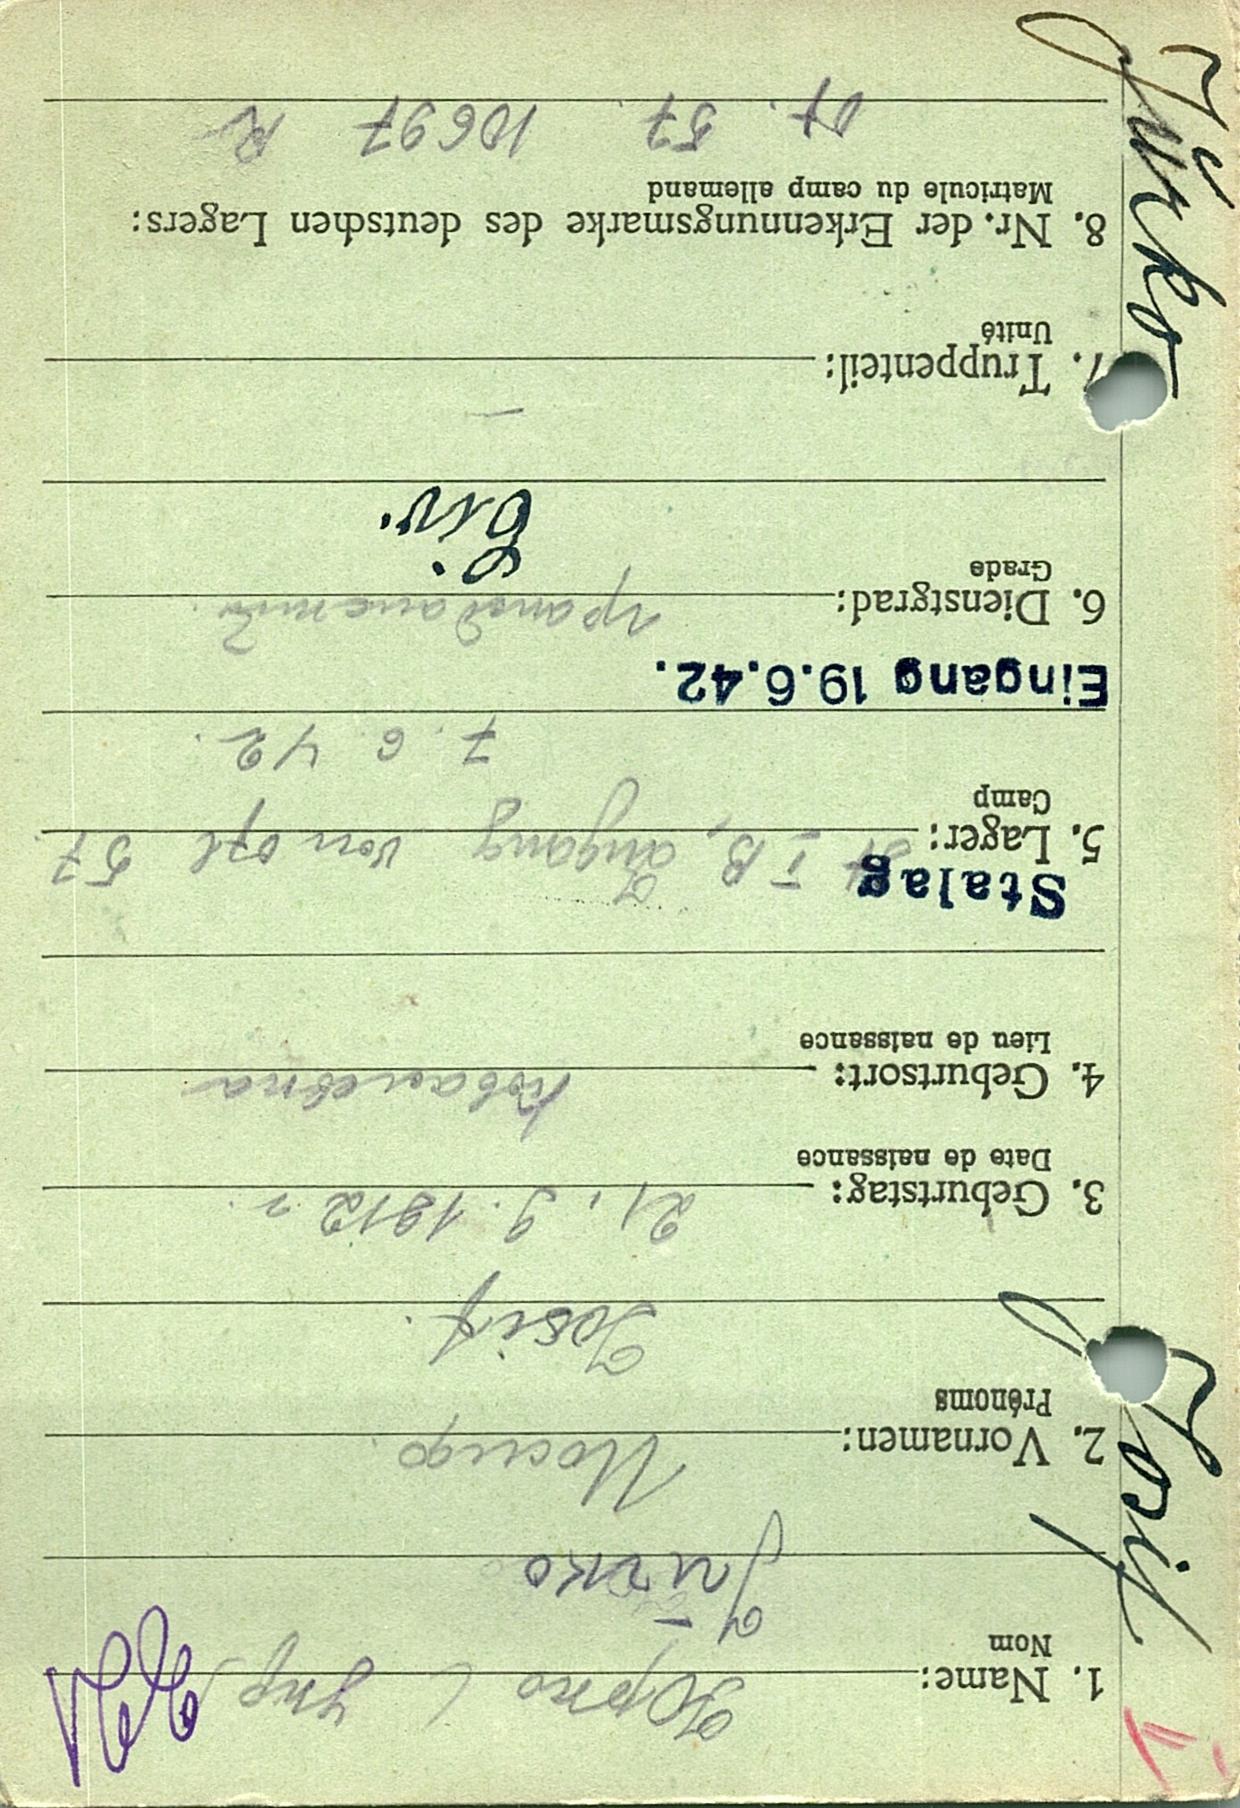 1. Name: Юрко
Nom
Jurko
2. Vornamen: Иосиф.
Prénoms
Josif.
3. Geburtstag: 21. 9. 1912 г.
Date de naissance
4. Geburtsort:
Lieu de naissance
Stalag
5. Lager: St I B, Zugang von Ofl 57
Camp
7. 6 42.
Eingang 19.6.42.
6. Dienstgrad: гражданский.
Grade
Civ.
7. Truppenteil: —
Unité
8. Nr. der Erkennungsmarke des deutschen Lagers:
Matricule du camp allemand
Of. 57. 10697 R
Josif Jürko